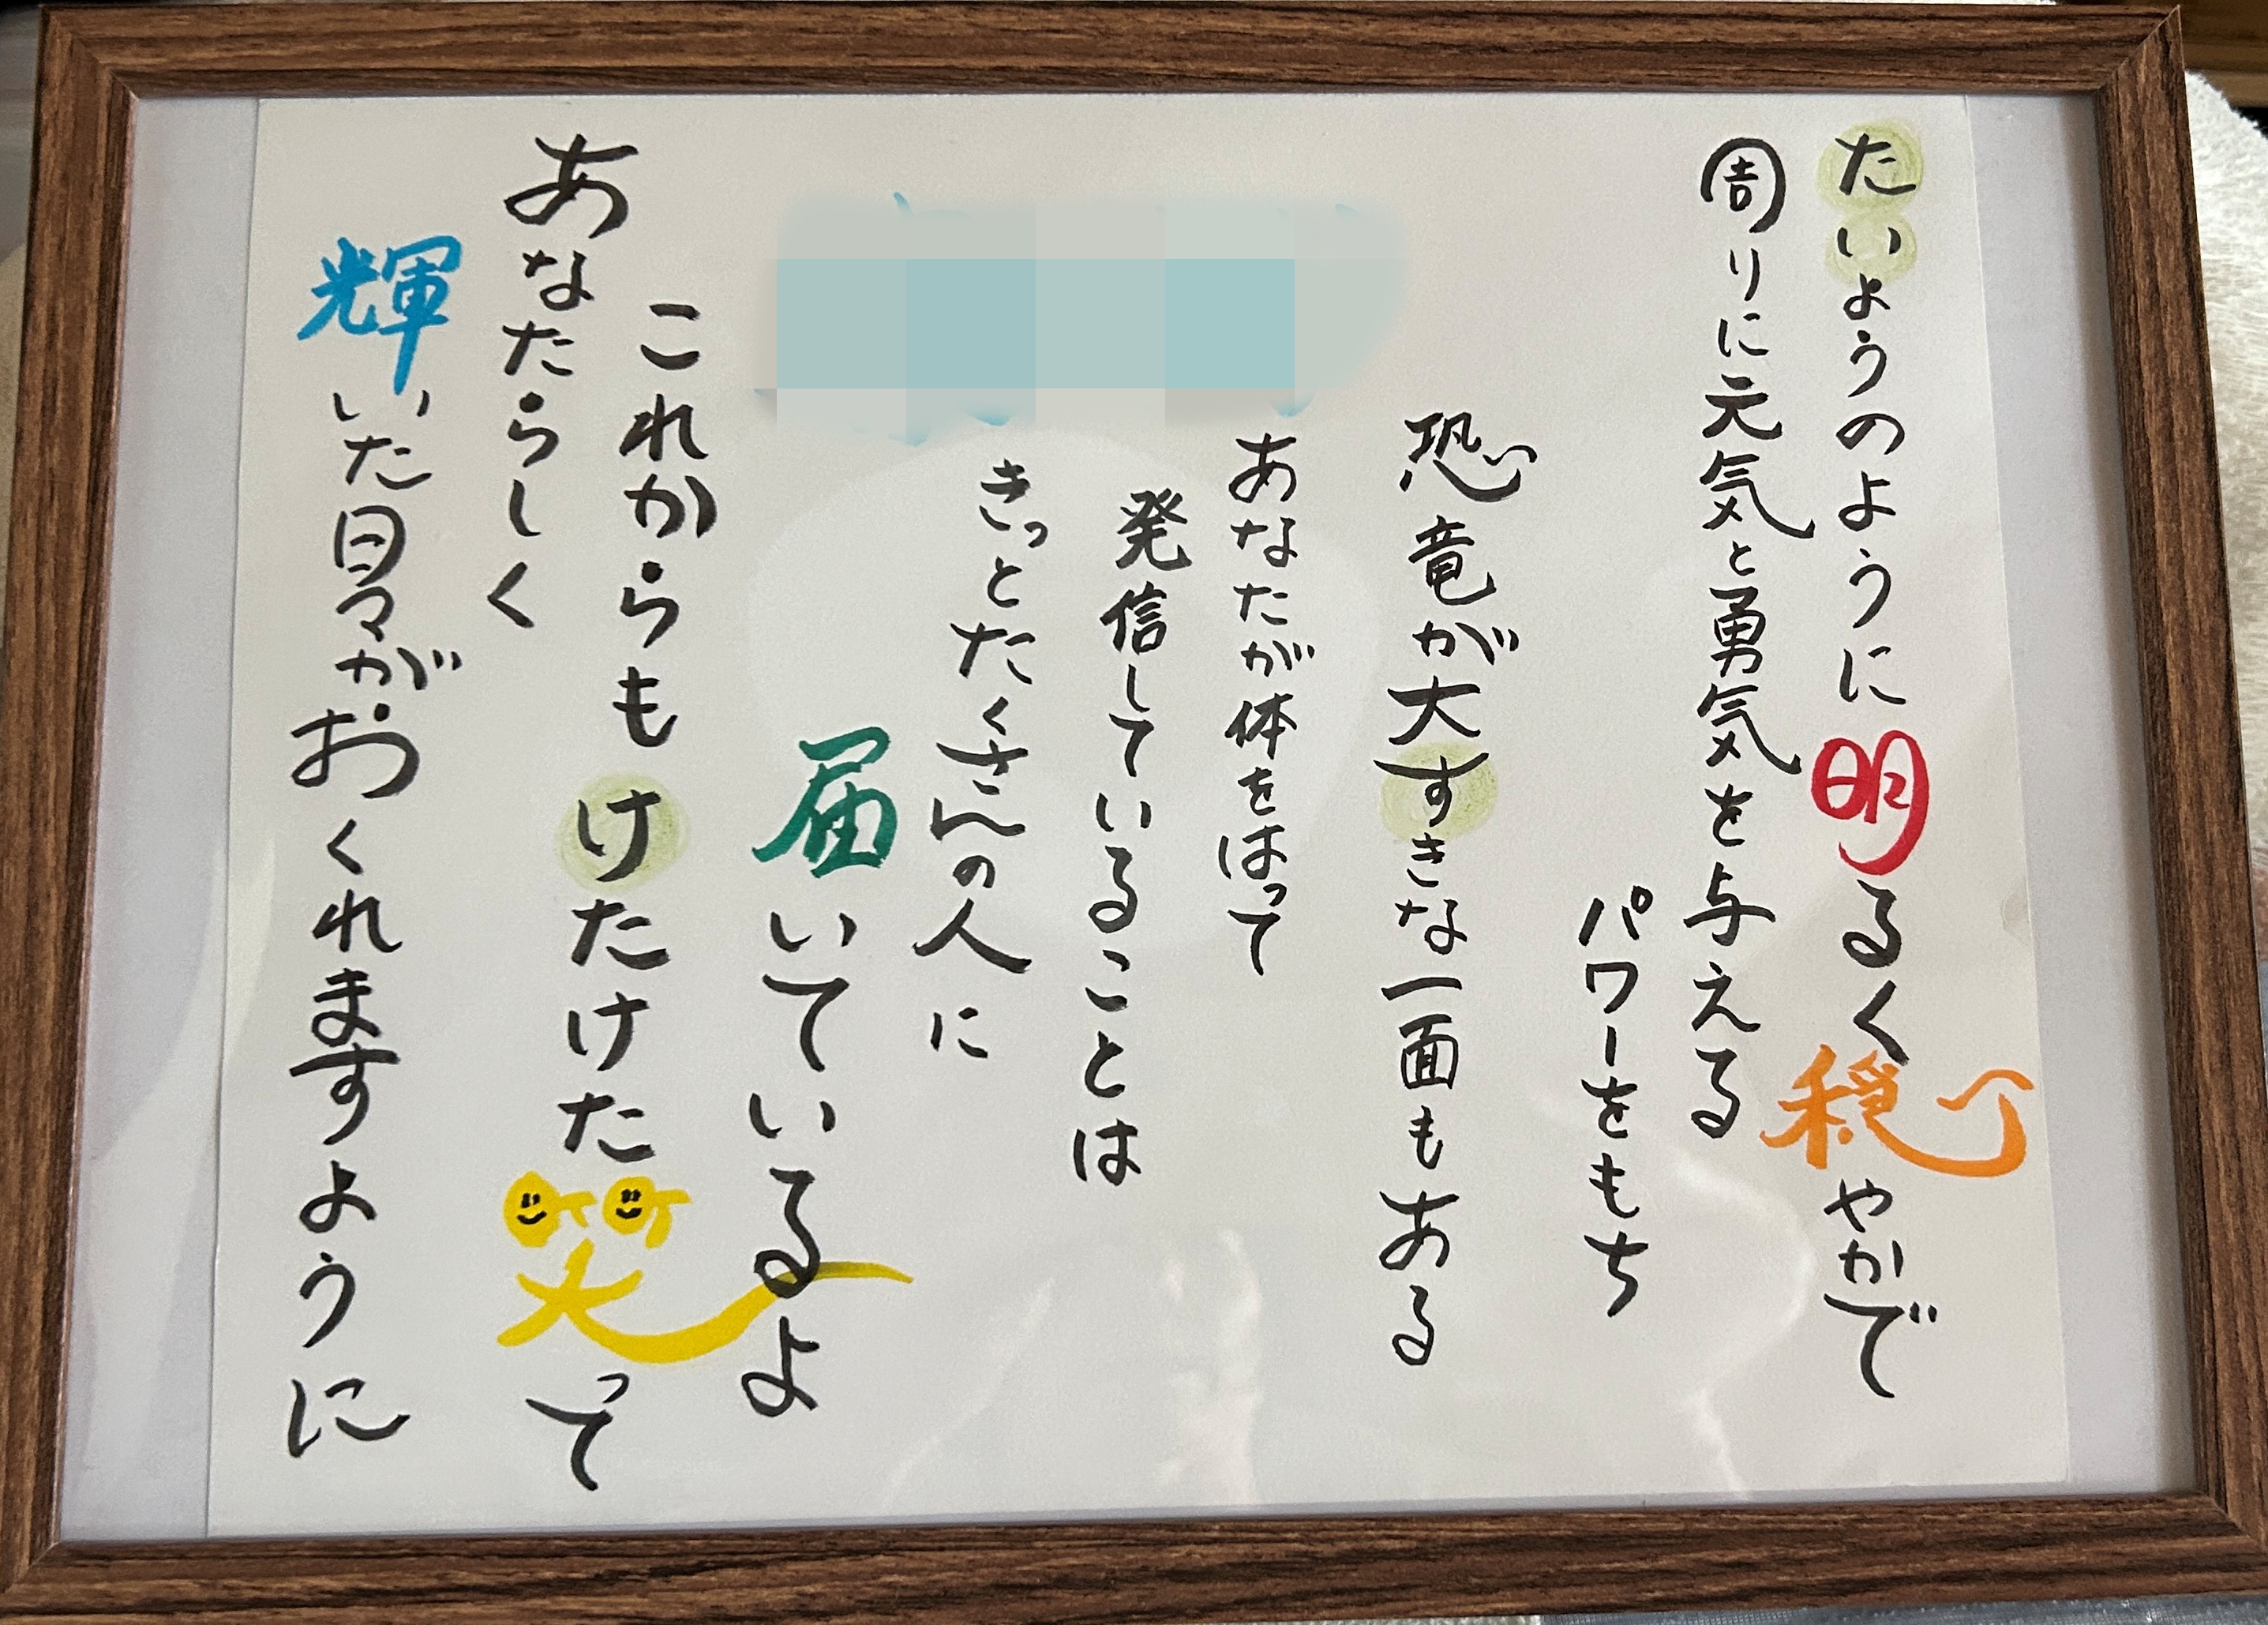 たいようのように明るく穏やかで
周りに元気と勇気を与える
パワーをもち
恐竜が大すきな一面もある
あなたが体をはって
発信していることは
きっとたくさんの人に
届いているよ
これからもけたけた笑って
あなたらしく
輝いた日々がおくれますように